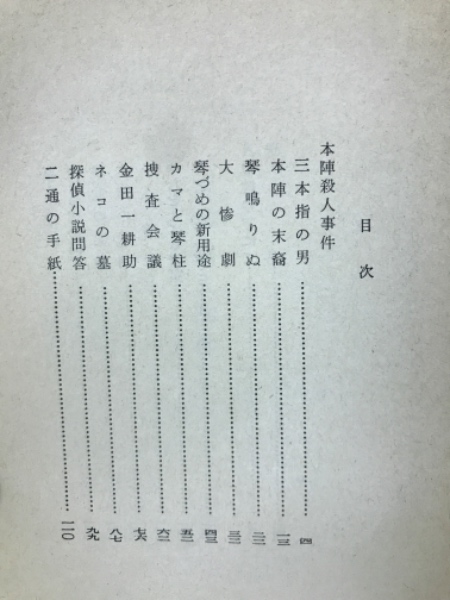 目次
本陣殺人事件
三本指の男……四
本陣の末裔……一三
琴鳴りぬ……二二
大惨劇……三三
琴づめの新用途……四三
カマと琴柱……五二
捜査会議……六二
金田一耕助……七六
ネコの墓……八七
探偵小説問答……九九
二通の手紙……一一〇